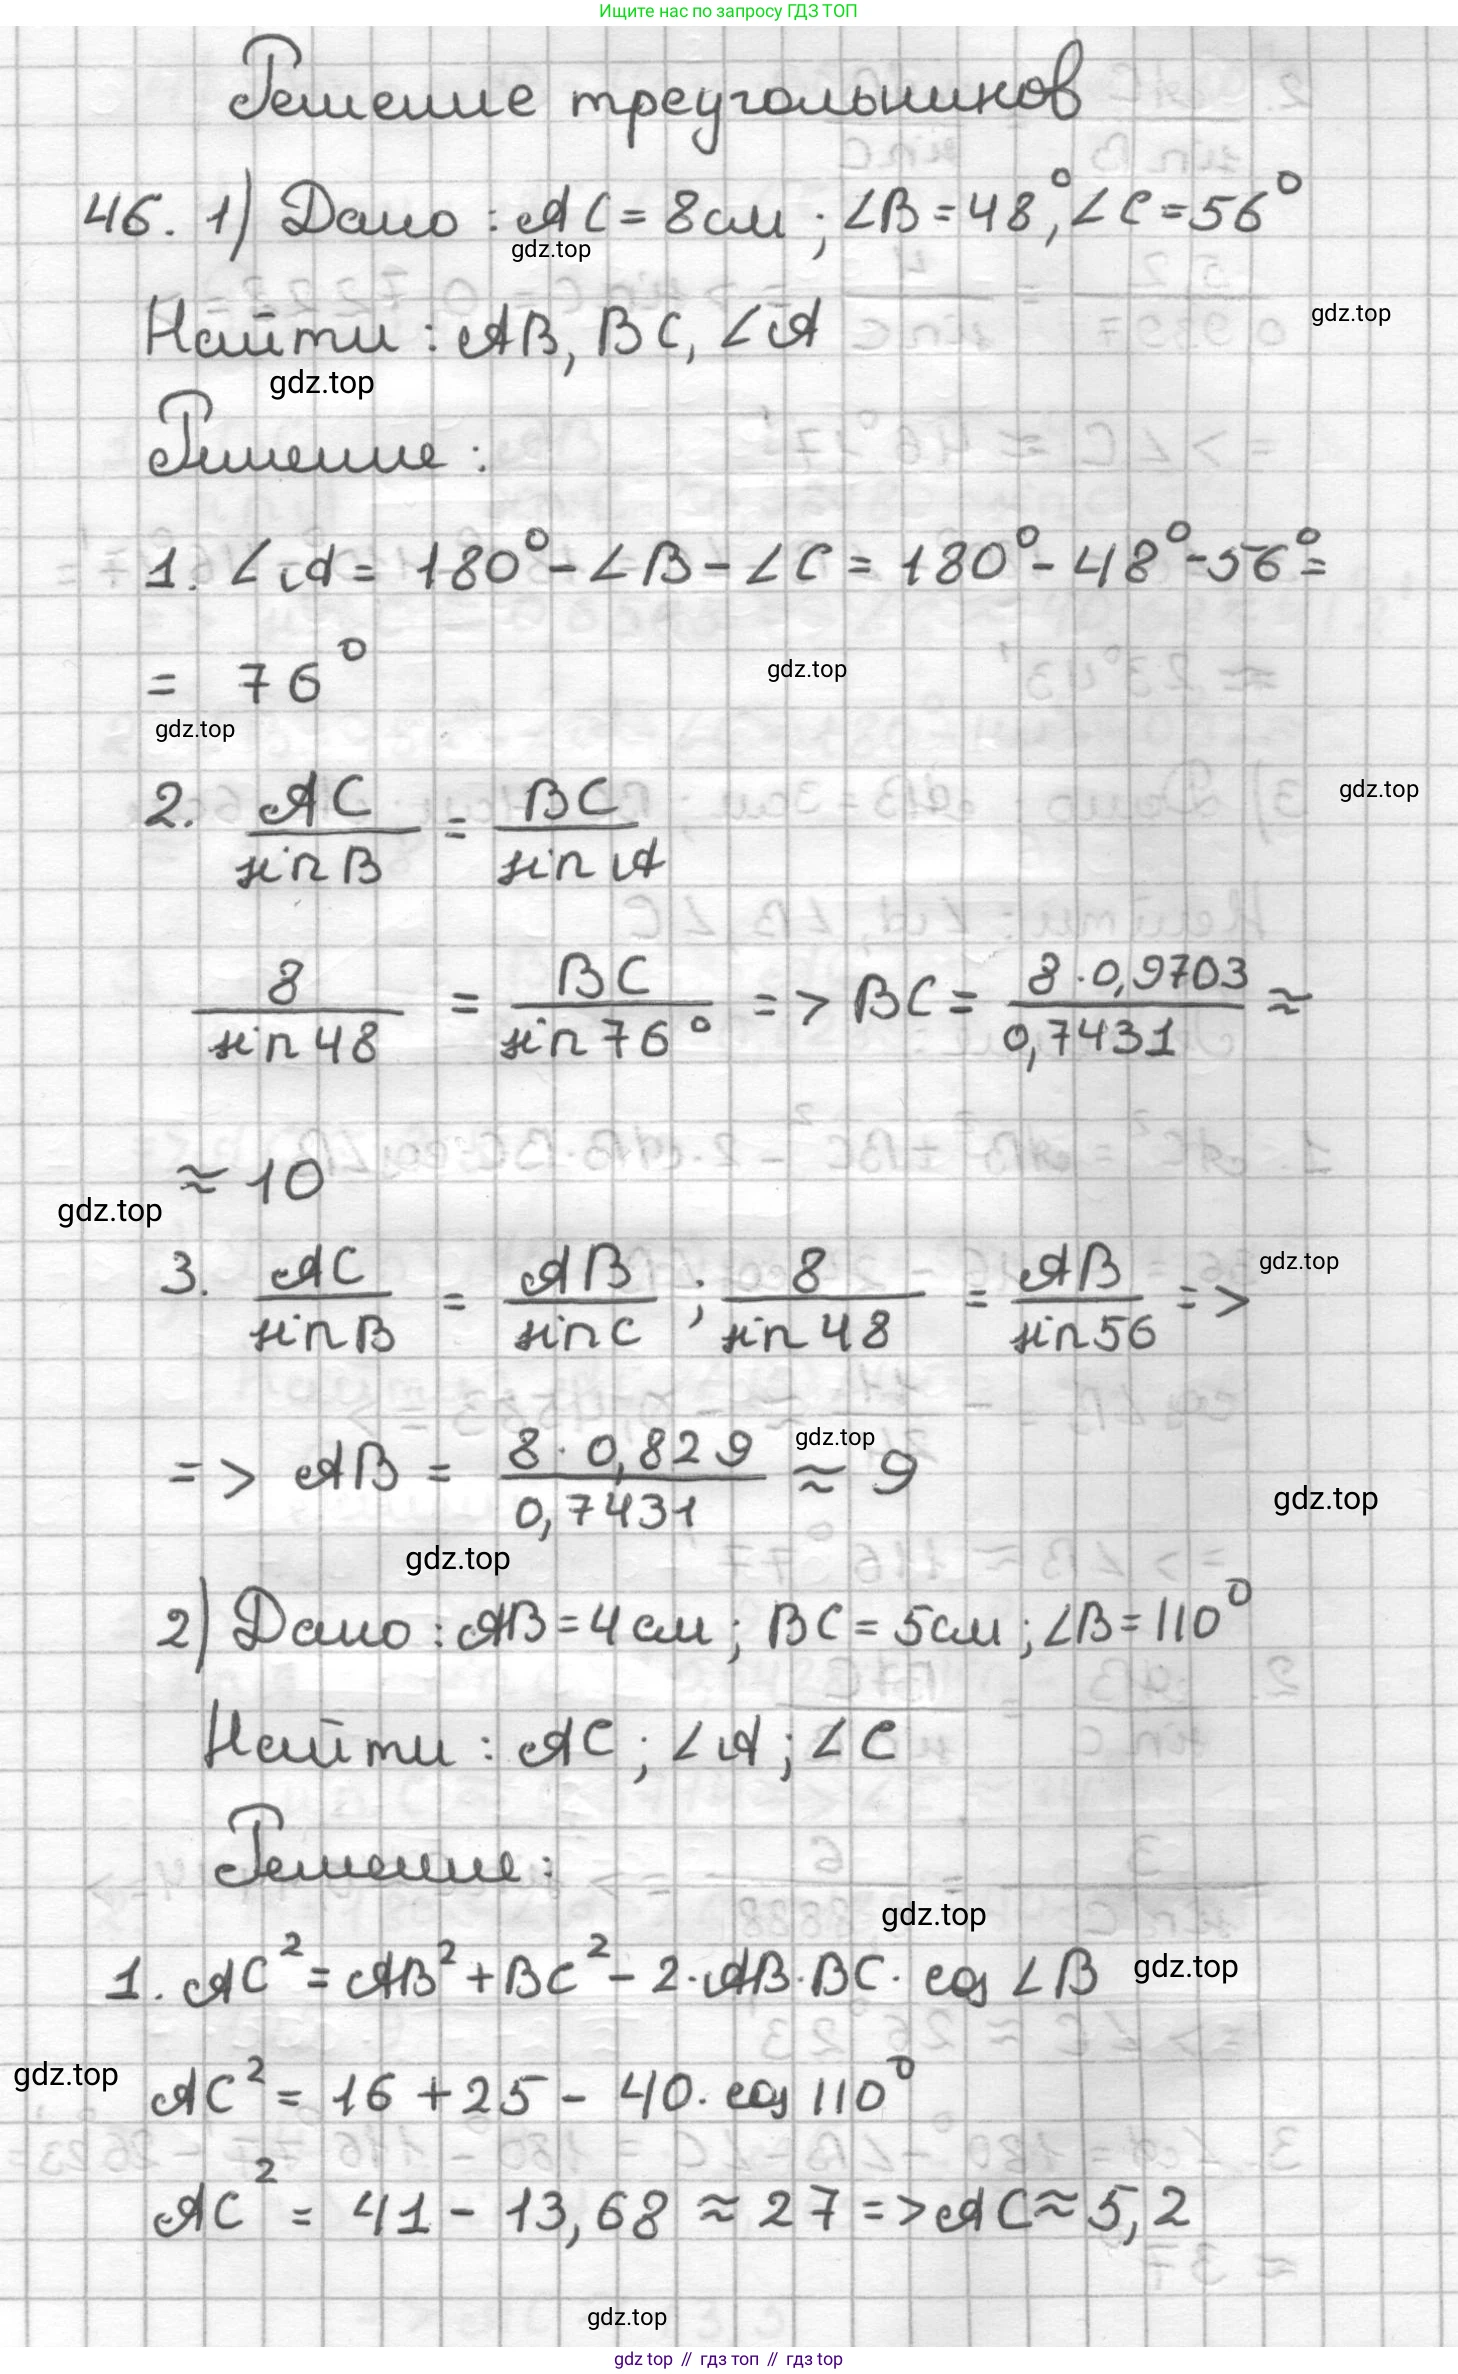 Ищите нас по запросу ГДЗ ТОП
Решение треугольников
46. 1) Дано: AC = 8см; ∠B = 48°, ∠C = 56°
gdz.top
gdz.top
Найти: AB, BC, ∠A
gdz.top
Решение:
1. ∠A = 180° - ∠B - ∠C = 180° - 48° - 56° =
= 76°
gdz.top
gdz.top
gdz.top
2. AC/sin B = BC/sin A
8/sin 48 = BC/sin 76° => BC = 8 · 0,9703/0,7431 ≈
≈ 10
gdz.top
3. AC/sin B = AB/sin C ; 8/sin 48 = AB/sin 56 =>
gdz.top
=> AB = 8 · 0,829/0,7431 ≈ 9
gdz.top
gdz.top
gdz.top
2) Дано: AB = 4 см; BC = 5см; ∠B = 110°
Найти: AC; ∠A; ∠C
Решение:
gdz.top
1. AC² = AB² + BC² - 2 · AB · BC · cos ∠B
gdz.top
gdz.top
AC² = 16 + 25 - 40 · cos 110°
AC² = 41 - 13,68 ≈ 27 => AC ≈ 5,2
gdz.top
gdz top // гдз топ // гдз top